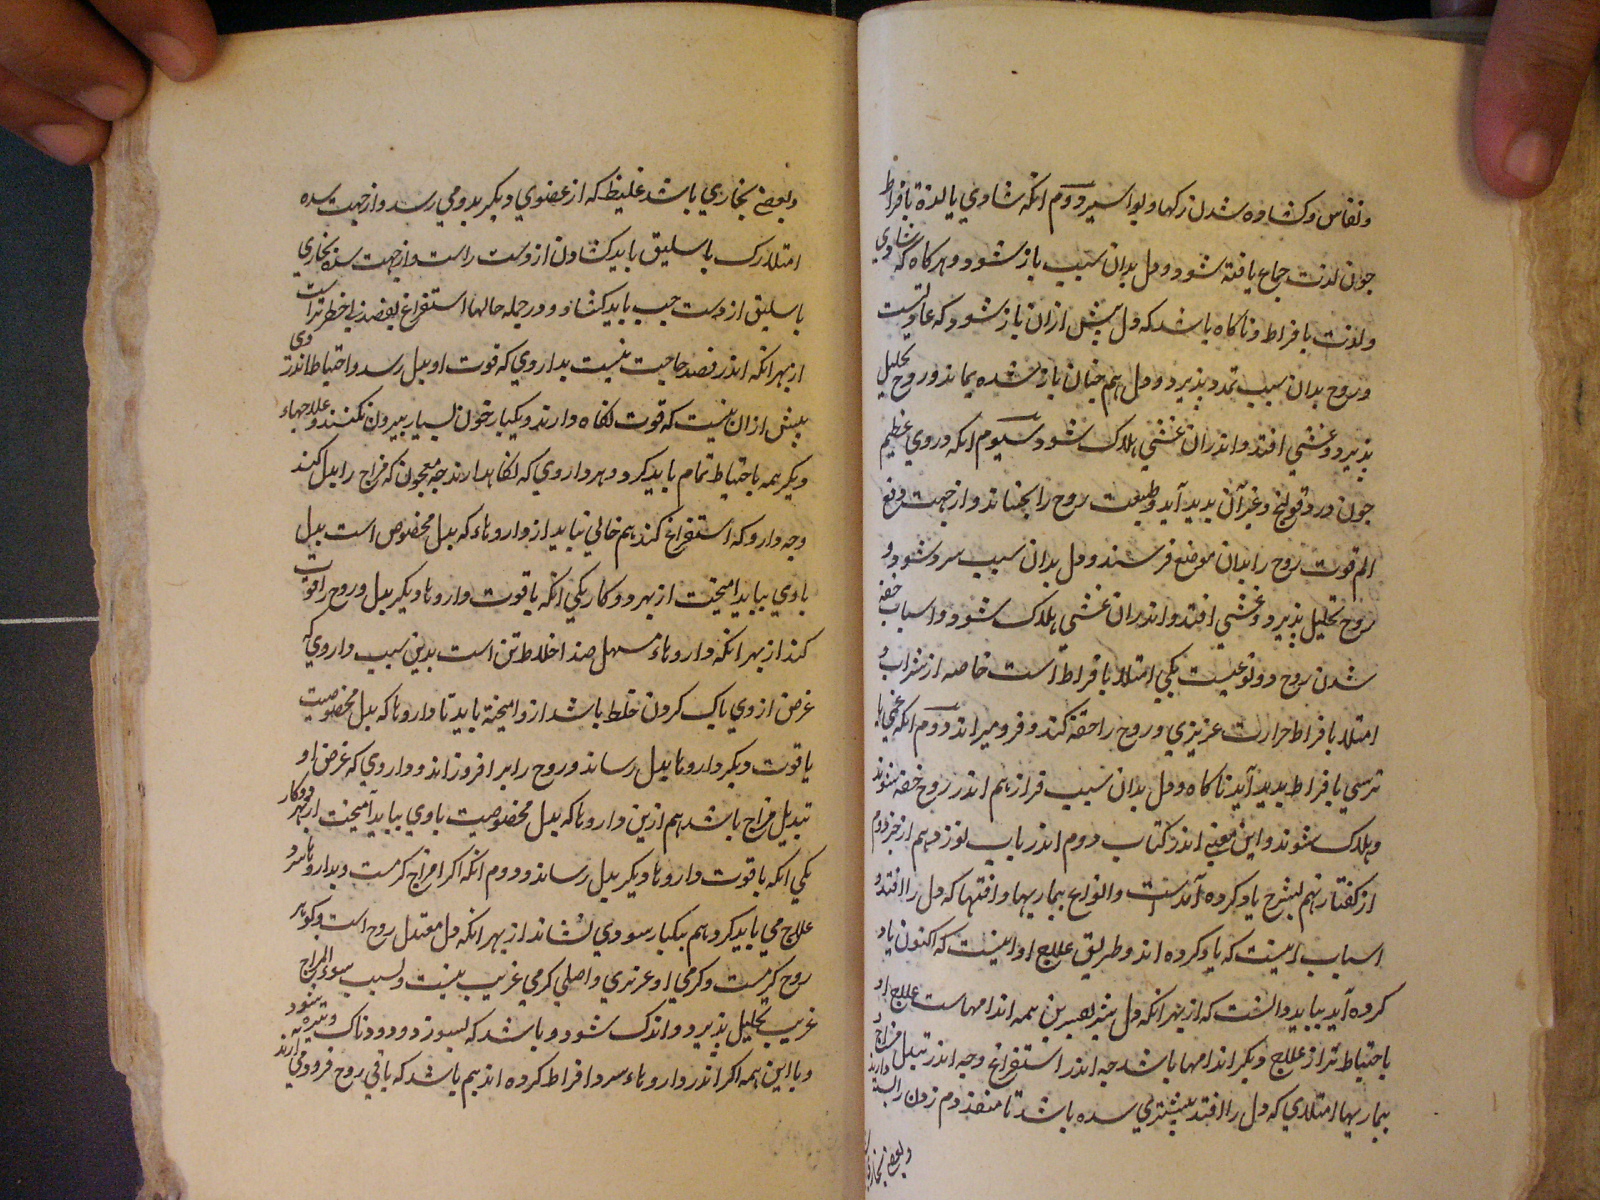 ونفاس وکشاده شدن رکها وبواسیر دوم انکه شادی یا لذة بافراط
جون لذت جماع یافته شود ودل بدان سبب باز شود وهرکاه که شادی
ولذت بافراط وناکاه باشد که دل بیش ازان باز شود که عادتست
وروح بدان سبب تمدد بذیرد ودل هم جنان باز شده بماند وروح تحلیل
بذیرد وغشی افتد واندران غشی هلاک شود سیوم انکه دردی عظیم
جون درد قولنج وغیر آن بدید آید وطبیعت روح را بجنباند واز جهت دفع
الم قوت روح را بدان موضع فرستد ودل بدان سبب سرد شود و
روح تحلیل بذیرد وغشی افتد واندران غشی هلاک شود واسباب خفه
شدن روح دو نوعیست یکی امتلاء بافراط است خاصه از شراب و
امتلاء بافراط حرارت غریزی وروح را خفه کند وفرو میراند دوم انکه غمی یا
ترسی بافراط بدید آید ناکاه ودل بدان سبب فراز هم اندر روح خفه شوند
وهلاک شوند واین معنی اندر کتاب دوم اندر باب نوزدهم از جزو دوم
از کفتار نهم بشرح یاد کرده آمدست وانواع بیماریها وافتها که دل را افتد و
اسباب اینست که یاد کرده اند وطریق علاج او اینست که اکنون یاد
کرده آید بباید دانست که از بهر انکه دل شریفترین همه اندامهاست علاج او
باحتیاط تر از علاج دیکر اندامها باشد جه اندر استفراغ وجه اندر تبدیل مزاج و
بیماریها امتلایی که دل را افتد بیشتری سده باشد تا منفذ دم زدن را بسته دارند
وبعضی بخاری
وبعضی بخاری باشد غلیظ که از عضوی دیکر بدو می رسد واز جهت سده
امتلا رک باسلیق باید کشادن از دست راست واز جهت سده بخاری
باسلیق از دست جب باید کشاد ودر جمله حالها استفراغ بفصد بی خطرتر است
از بهر انکه اندر فصد حاجت نیست بداروی که قوت او بدل رسد واحتیاط اندر وی
بیش ازان نیست که قوت نکاه دارند ویکبار خون بسیار بیرون نکنند وعلاجهاء
دیکر همه باحتیاط تمام باید کرد وهر داروی که بکار دارند جه معجون که مزاج را بدل کند
وجه دارو که استفراغ کند هم خالی نباید از داروهاء که بدل مخصوص است بدل
با وی بباید امیخت از بهر دو کار یکی انکه تا قوت داروها دیکر بدل وروح را قوت
کند از بهر انکه داروهاء مسهل ضد اخلاط تن است بدین سبب داروی که
غرض از وی باک کردن خلط باشد ازو امیخته باید تا داروها که بدل مخصوصیت
یا قوت دیکر داروها بدل رساند وروح را بر افروزاند وداروی که غرض او
تبدیل مزاج باشد هم ازین داروها که بدل مخصوصیت با وی بباید آمیخت از بهر دو کار
یکی انکه تا قوت داروها دیکر بدل رساند ودوم انکه اکر مزاج کرمست وبداروها سرد
علاج می باید کرد هم بیکبار سردی نشاند از بهر انکه دل معتدل روح است وکوهر
روح کرمست وکرمی او عزیزی واصلی کرمی غریب نیست وبسبب سوء المزاج
غریب تحلیل بذیرد واندک شود وباشد که بسوزد ودودناک وتیره شود
وبا این همه اکر اندر داروهاء سرد افراط کرده اند بیم باشد که باقی روح فرو میرانند